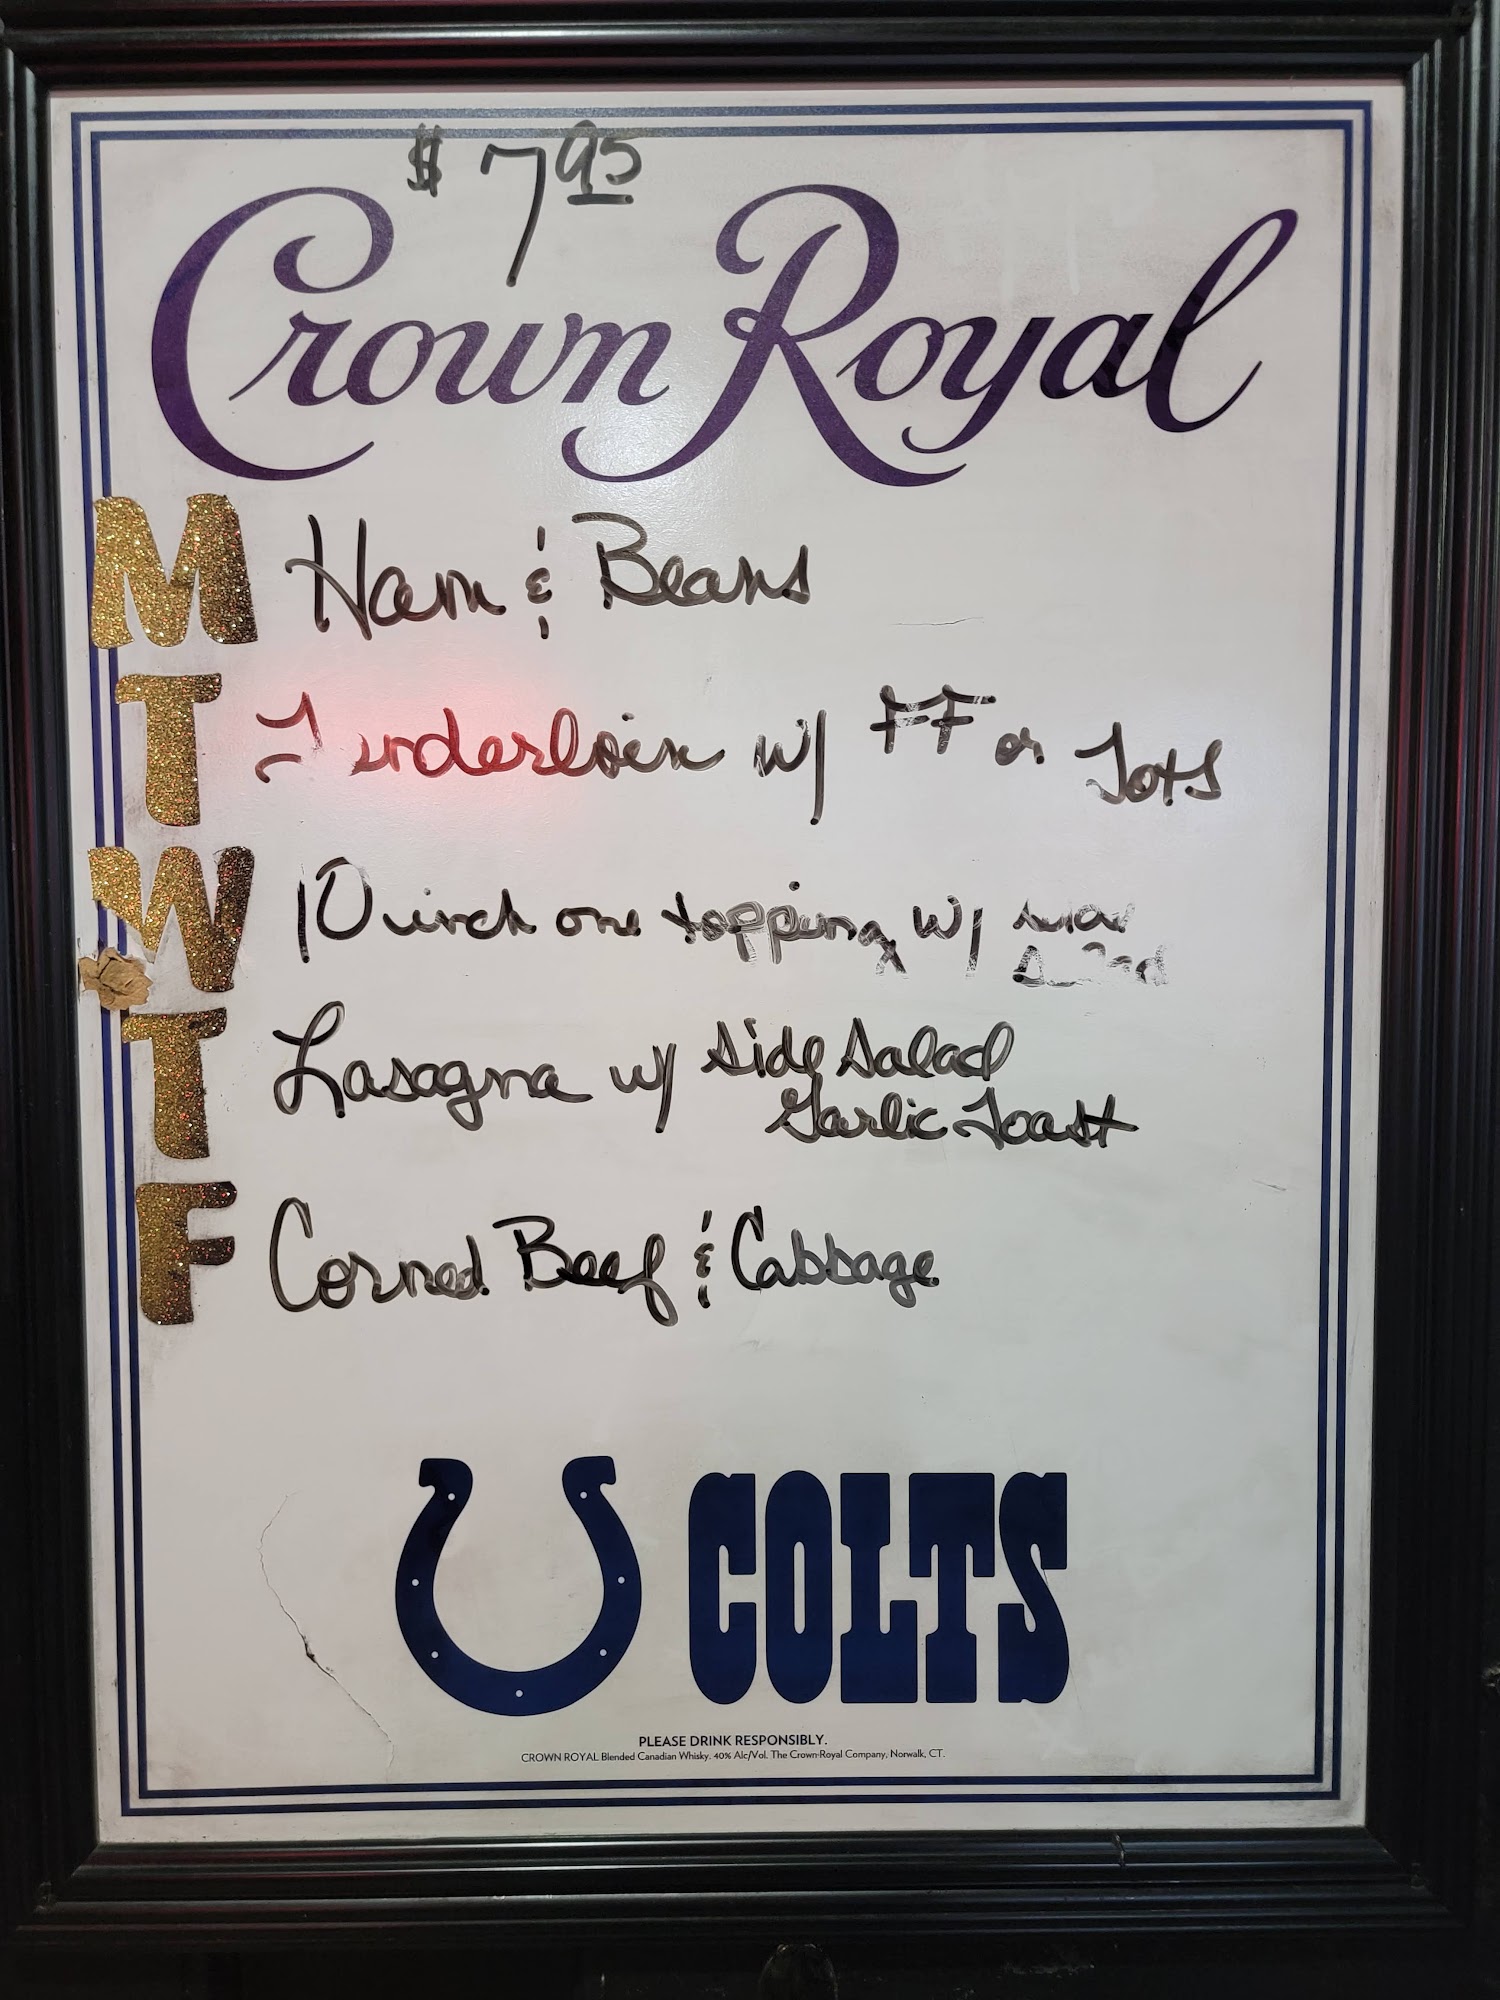 $ 7 95
Crown Royal
M Ham & Beans
T Tenderloin w/ FF or Tots
W 10 inch one topping w/
T Lasagna w/ Side Salad
Garlic Toast
F Corned Beef & Cabbage
COLTS
PLEASE DRINK RESPONSIBLY.
CROWN ROYAL Blended Canadian Whisky. 40% Alc/Vol. The Crown Royal Company, Norwalk, CT.